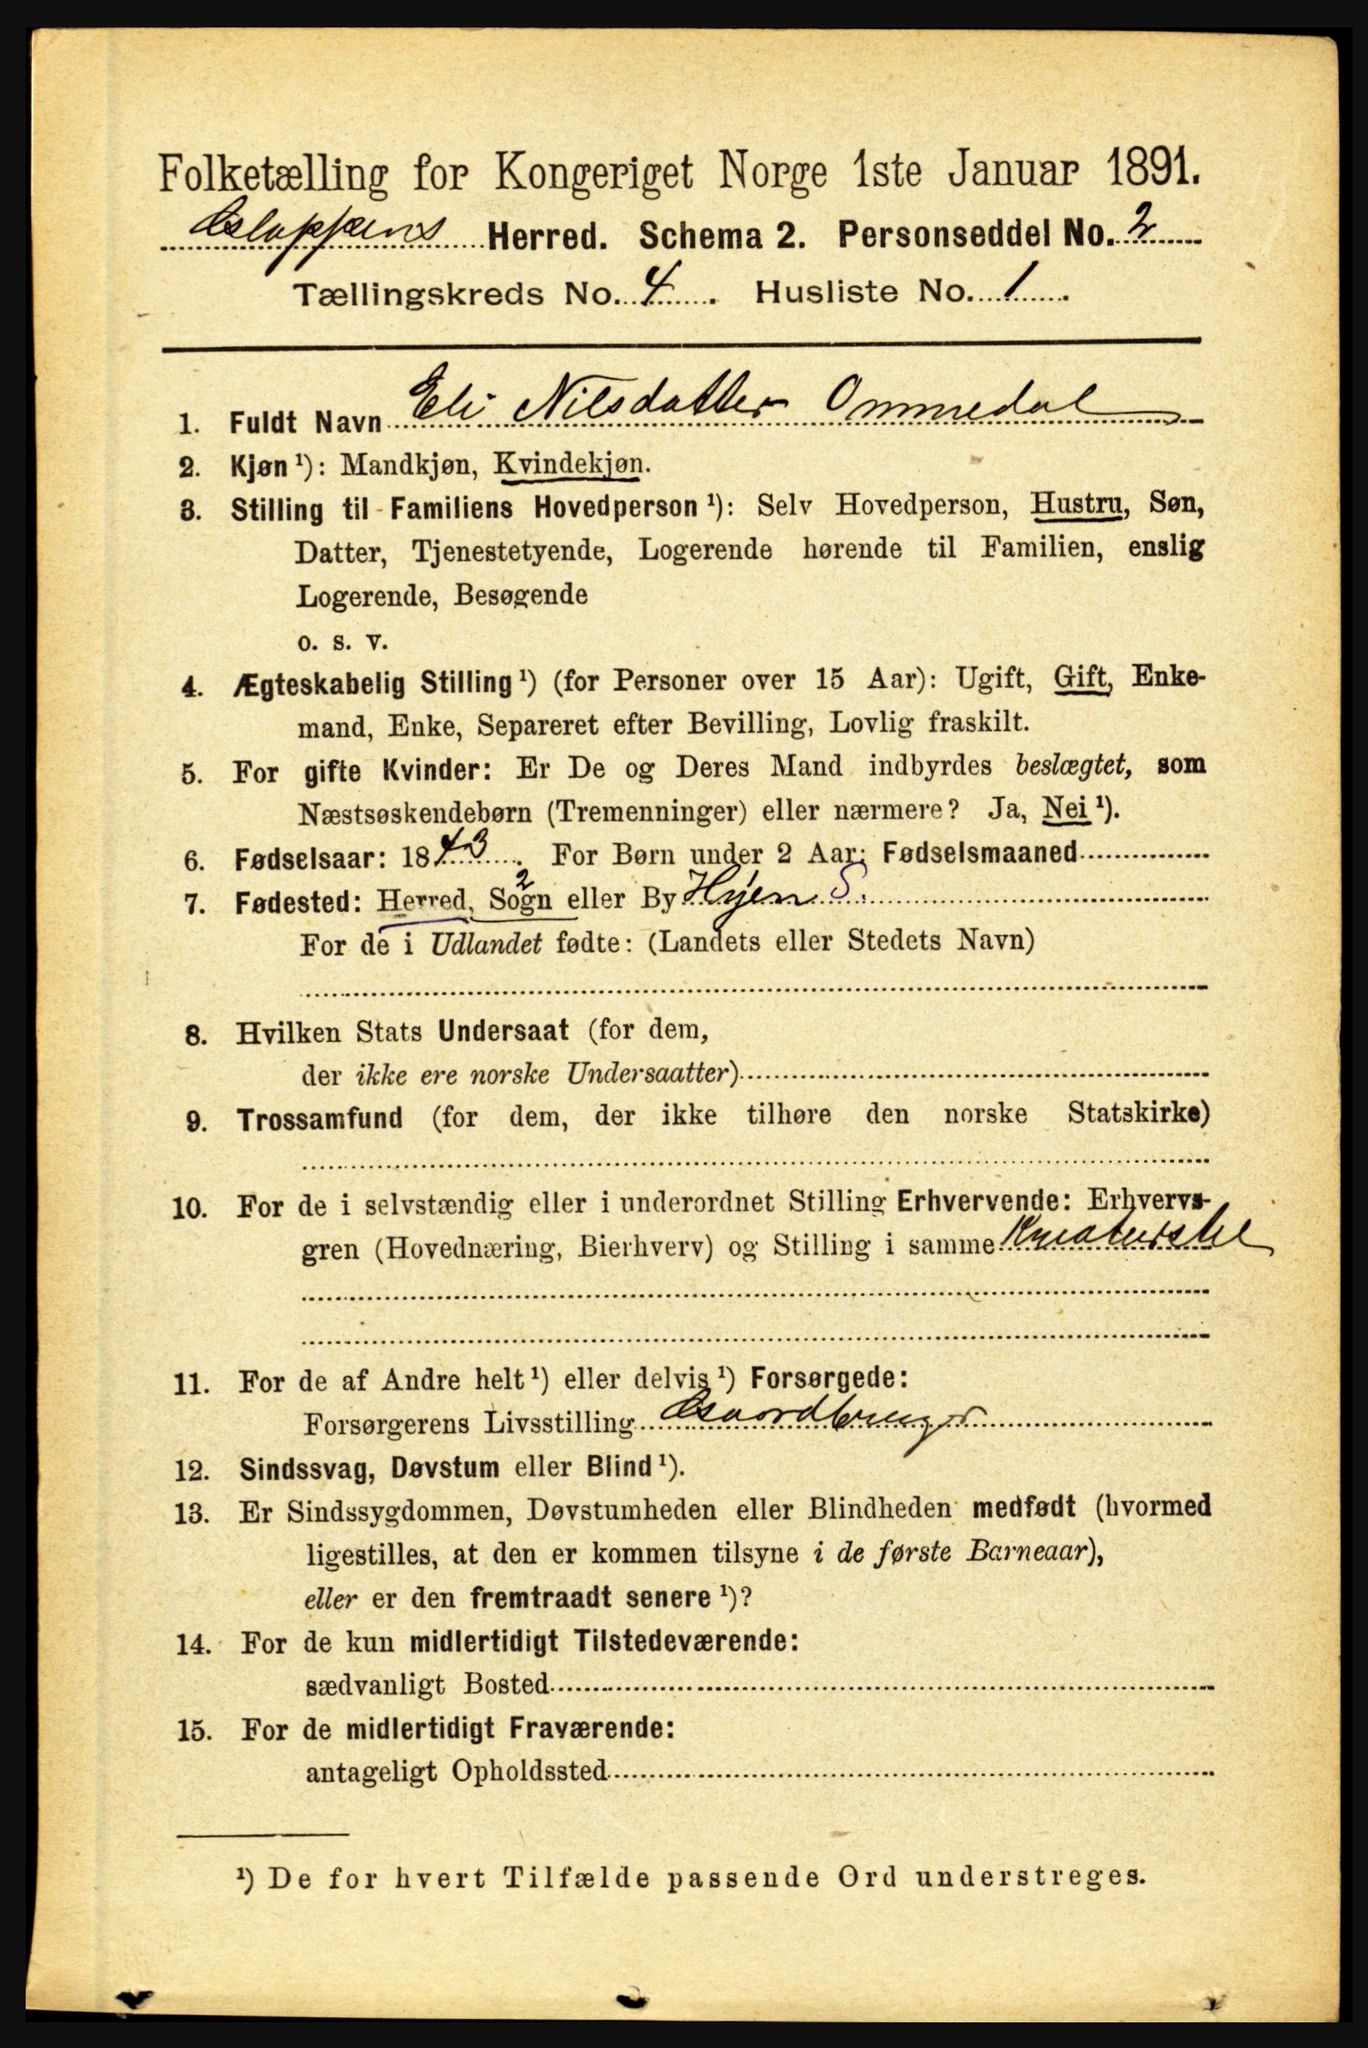 Folketælling for Kongeriget Norge 1ste Januar 1891.
Gloppens Herred. Schema 2. Personseddel No. 2
Tællingskreds No. 4. Husliste No. 1.
1. Fuldt Navn Eli Nilsdatter Ommedal
2. Kjøn ¹): Mandkjøn, Kvindekjøn.
3. Stilling til Familiens Hovedperson ¹): Selv Hovedperson, Hustru, Søn,
Datter, Tjenestetyende, Logerende hørende til Familien, enslig
Logerende, Besøgende
o. s. v.
4. Ægteskabelig Stilling ¹) (for Personer over 15 Aar): Ugift, Gift, Enke-
mand, Enke, Separeret efter Bevilling, Lovlig fraskilt.
5. For gifte Kvinder: Er De og Deres Mand indbyrdes beslægtet, som
Næstsøskendebørn (Tremenninger) eller nærmere? Ja, Nei ¹).
6. Fødselsaar: 1843. For Børn under 2 Aar: Fødselsmaaned
2
7. Fødested: Herred, Sogn eller By Hyen S.
For de i Udlandet fødte: (Landets eller Stedets Navn)
8. Hvilken Stats Undersaat (for dem,
der ikke ere norske Undersaatter)
9. Trossamfund (for dem, der ikke tilhøre den norske Statskirke)
10. For de i selvstændig eller i underordnet Stilling Erhvervende: Erhvervs-
gren (Hovednæring, Bierhverv) og Stilling i samme Kreaturstel
11. For de af Andre helt ¹) eller delvis ¹) Forsørgede:
Forsørgerens Livsstilling Gaardbruger
12. Sindssvag, Døvstum eller Blind ¹).
13. Er Sindssygdommen, Døvstumheden eller Blindheden medfødt (hvormed
ligestilles, at den er kommen tilsyne i de første Barneaar),
eller er den fremtraadt senere ¹)?
14. For de kun midlertidigt Tilstedeværende:
sædvanligt Bosted
15. For de midlertidigt Fraværende:
antageligt Opholdssted
¹) De for hvert Tilfælde passende Ord understreges.